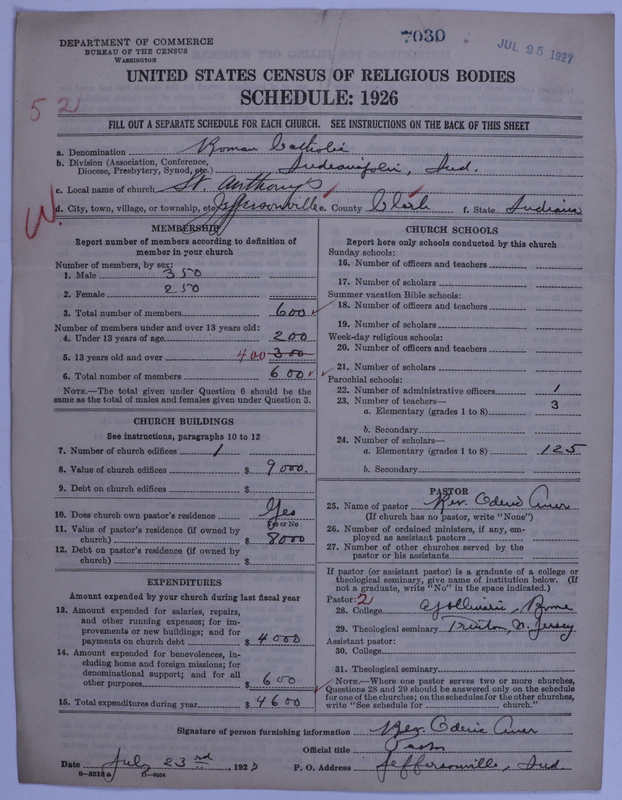 7030
JUL 25 1927
DEPARTMENT OF COMMERCE
BUREAU OF THE CENSUS
WASHINGTON
UNITED STATES CENSUS OF RELIGIOUS BODIES
SCHEDULE: 1926
52
FILL OUT A SEPARATE SCHEDULE FOR EACH CHURCH. SEE INSTRUCTIONS ON THE BACK OF THIS SHEET
a. Denomination Roman Catholic
b. Division (Association, Conference, Diocese, Presbytery, Synod, etc.) Indianapolis, Ind.
c. Local name of church St. Anthony's
W.
d. City, town, village, or township, etc. Jeffersonville e. County Clark f. State Indiana
MEMBERSHIP
Report number of members according to definition of
member in your church
Number of members, by sex:
1. Male 350
2. Female 250
3. Total number of members 600
Number of members under and over 13 years old:
4. Under 13 years of age 200
5. 13 years old and over 400 300
6. Total number of members 600
NOTE.—The total given under Question 6 should be
same as the total of males and females given under Question 3.
CHURCH BUILDINGS
See instructions, paragraphs 10 to 12
7. Number of church edifices 1
8. Value of church edifices $ 9000.
9. Debt on church edifices $
10. Does church own pastor's residence Yes
Yes or No
11. Value of pastor's residence (if owned by
church) $ 8000
12. Debt on pastor's residence (if owned by
church) $
EXPENDITURES
Amount expended by your church during last fiscal year
13. Amount expended for salaries, repairs,
and other running expenses; for im-
provements or new buildings; and for
payments on church debt $ 4000
14. Amount expended for benevolences, in-
cluding home and foreign missions; for
denominational support; and for all
other purposes $ 600
15. Total expenditures during year $ 4600
CHURCH SCHOOLS
Report here only schools conducted by this church
Sunday schools:
16. Number of officers and teachers
17. Number of scholars
Summer vacation Bible schools:
18. Number of officers and teachers
19. Number of scholars
Week-day religious schools:
20. Number of officers and teachers
21. Number of scholars
Parochial schools:
22. Number of administrative officers 1
23. Number of teachers—
a. Elementary (grades 1 to 8) 3
b. Secondary
24. Number of scholars—
a. Elementary (grades 1 to 8) 125
b. Secondary
PASTOR
25. Name of pastor Rev. Oderic Auer
(If church has no pastor, write "None")
26. Number of ordained ministers, if any, em-
ployed as assistant pastors
27. Number of other churches served by the
pastor or his assistants
If pastor (or assistant pastor) is a graduate of a college or
theological seminary, give name of institution below. (If
not a graduate, write "No" in the space indicated.)
Pastor: 2
28. College Rome
29. Theological seminary Trenton, N. Jersey
Assistant pastor:
30. College
31. Theological seminary
NOTE.—Where one pastor serves two or more churches,
Questions 28 and 29 should be answered only on the schedule
for one of the churches; on the schedules for the other churches,
write "See schedule for church."
Signature of person furnishing information Rev. Oderic Auer
Official title Pastor
Date July 23rd, 1927 P. O. Address Jeffersonville, Ind.
6—5316a 11—9054